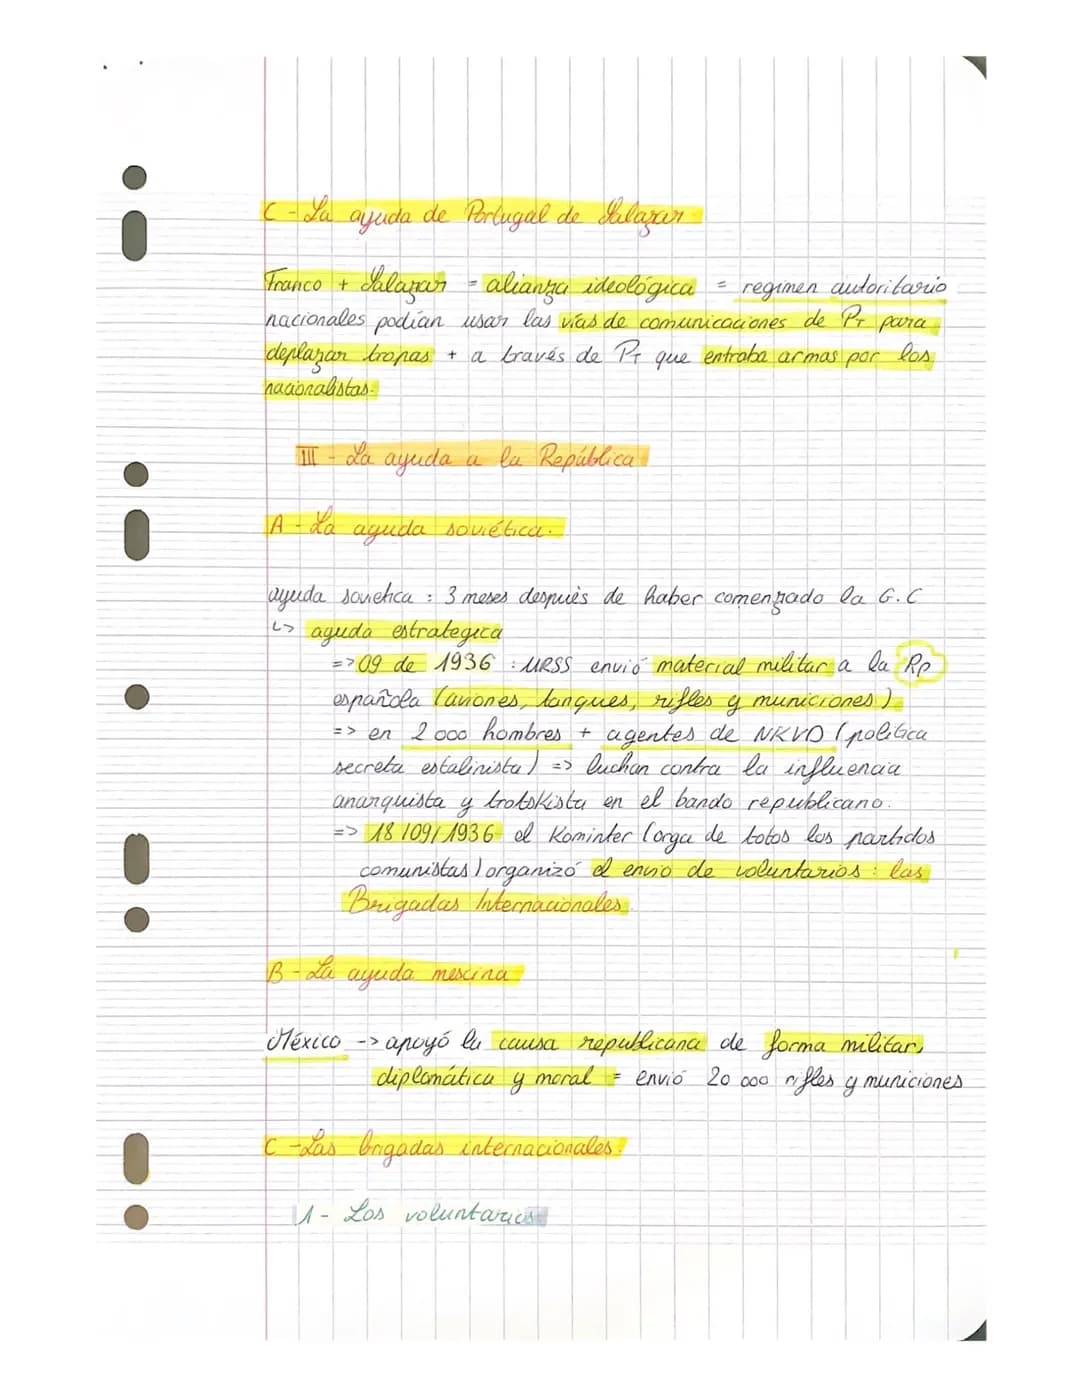 C - La ayuda de Portugal de Salazar
Franco + Salazar = alianza ideológica = regimen autoritario
nacionales podían usar las vías de comunicaciones de PT para
deplazar tropas + a través de PT que entraba armas por los
nacionalistas.
III - La ayuda a la República
A - La ayuda soviética.
ayuda sovietica : 3 meses después de haber comenzado la G.C
↳ ayuda estrategica
=> 09 de 1936 : URSS envió material militar a la Rp
española (aviones, tanques, rifles y municiones)
=> en 2 000 hombres + agentes de NKVD (politica
secreta estalinista) => luchan contra la influencia
anarquista y trotskista en el bando republicano.
=> 18/09/1936 el Kominter (orga de totos los partidos
comunistas) organizó el envio de voluntarios : las
Brigadas Internacionales.
B - La ayuda mescina
México -> apoyó la causa républicana de forma militar,
diplomática y moral = envió 20 000 rifles y municiones
C - Las brigadas internacionales.
1 - Los voluntarios